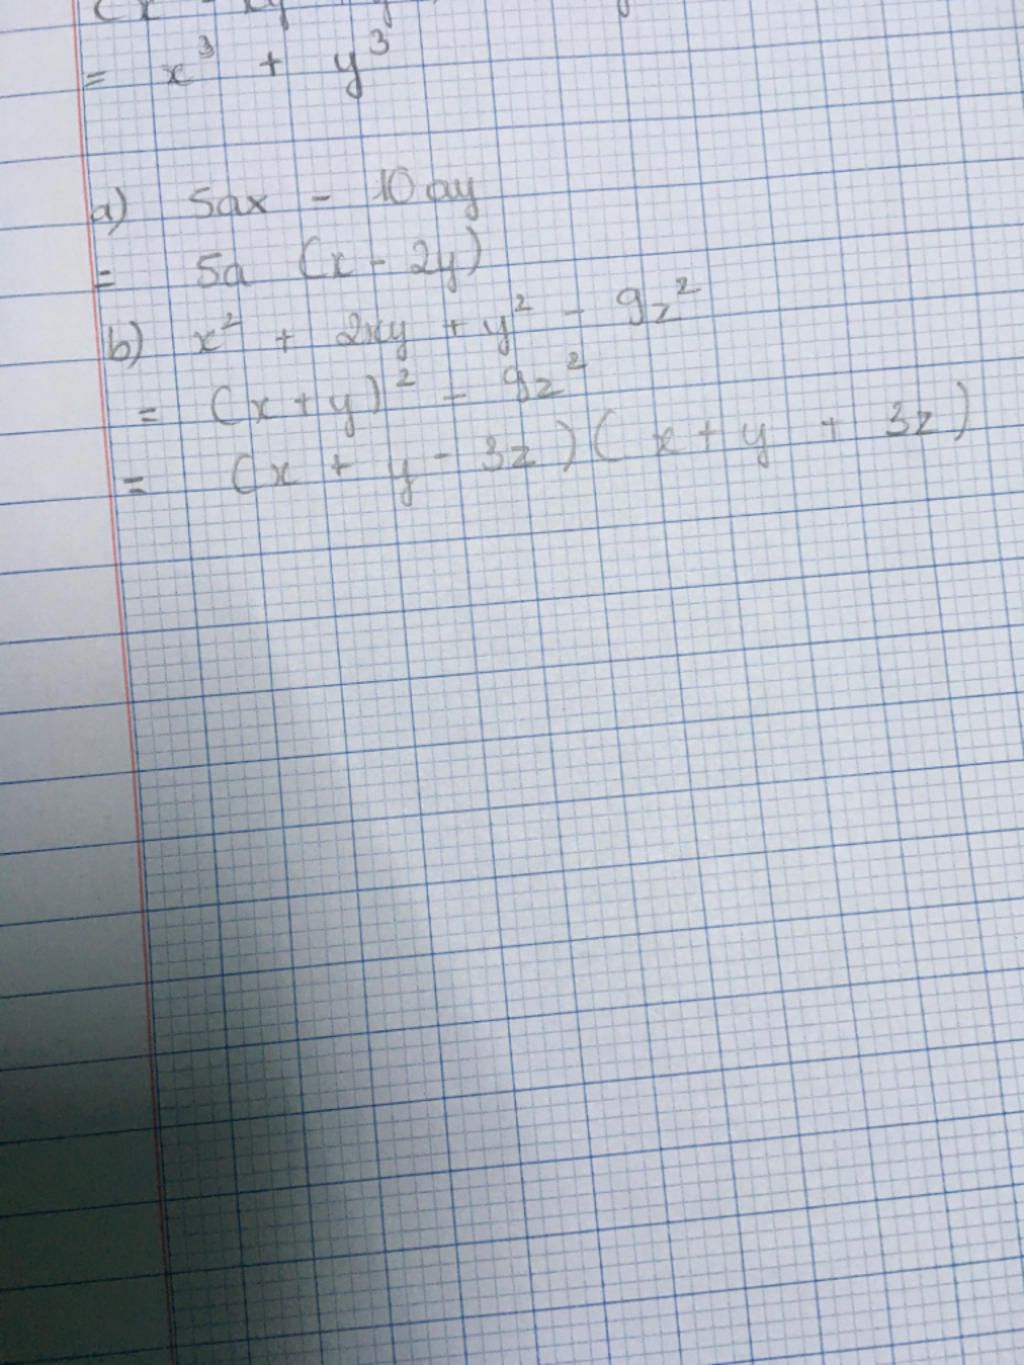 = x³ + y³
a) 5ax - 10ay
= 5a (x - 2y)
b) x² + 2xy + y² - 9z²
= (x + y)² - 9z²
= (x + y - 3z)(x + y + 3z)